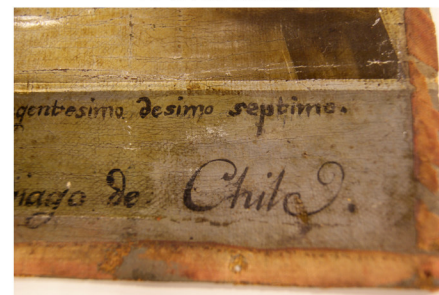 gentesimo desimo septimo.
iago de Chile.